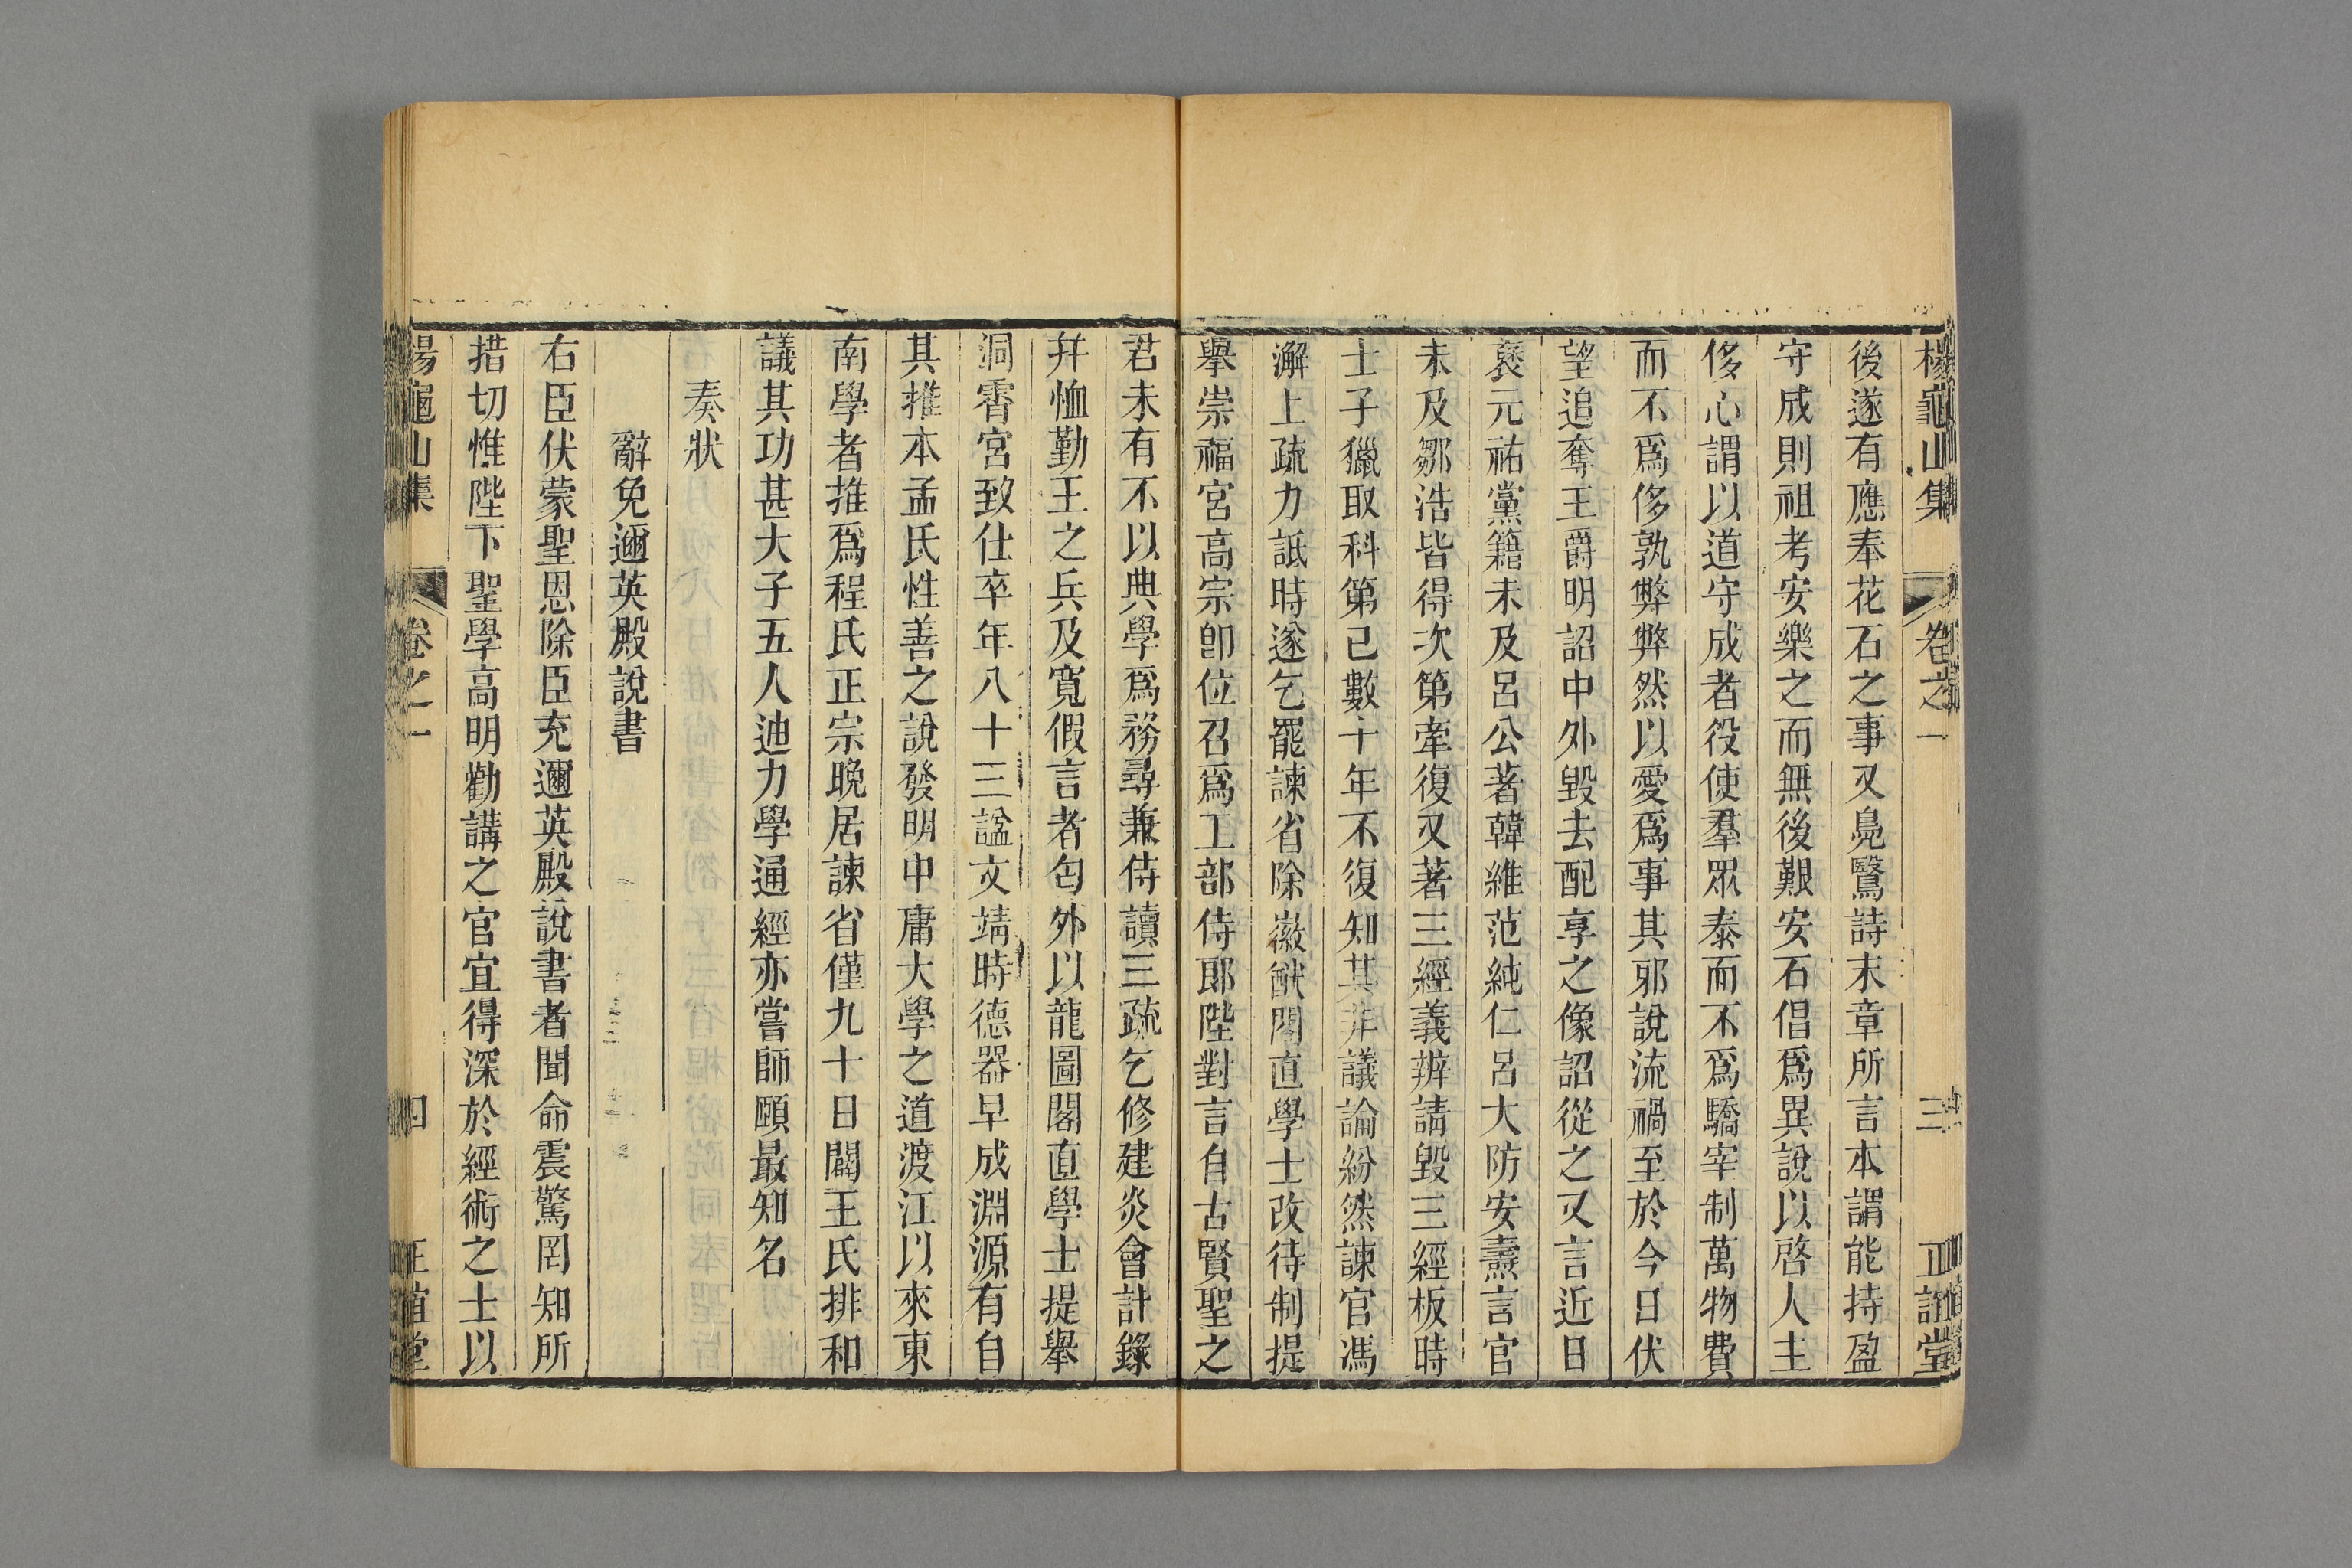 楊龜山集 卷之一 三 正誼堂
後遂有應奉花石之事又鳧鷖詩末章所言本謂能持盈
守成則祖考安樂之而無後艱安石倡爲異說以啓人主
侈心謂以道守成者役使羣眾泰而不爲驕宰制萬物費
而不爲侈孰弊弊然以愛爲事其邪說流禍至於今日伏
望追奪王爵明詔中外毀去配享之像詔從之又言近日
褒元祐黨籍未及呂公著韓維范純仁呂大防安燾言官
未及鄒浩皆得次第牽復又著三經義辨請毀三經板時
士子獵取科第已數十年不復知其非議論紛然諫官馮
澥上疏力詆時遂乞罷諫省除徽猷閣直學士改待制提
舉崇福宮高宗卽位召爲工部侍郎陛對言自古賢聖之
君未有不以典學爲務尋兼侍讀三疏乞修建炎會計錄
幷恤勤王之兵及寬假言者匄外以龍圖閣直學士提舉
洞霄宮致仕卒年八十三諡文靖時德器早成淵源有自
其推本孟氏性善之說發明中庸大學之道渡江以來東
南學者推爲程氏正宗晚居諫省僅九十日闢王氏排和
議其功甚大子五人迪力學通經亦嘗師頤最知名
奏狀
辭免邇英殿說書
右臣伏蒙聖恩除臣充邇英殿說書者聞命震驚罔知所
措切惟陛下聖學高明勸講之官宜得深於經術之士以
楊龜山集 卷之一 四 正誼堂